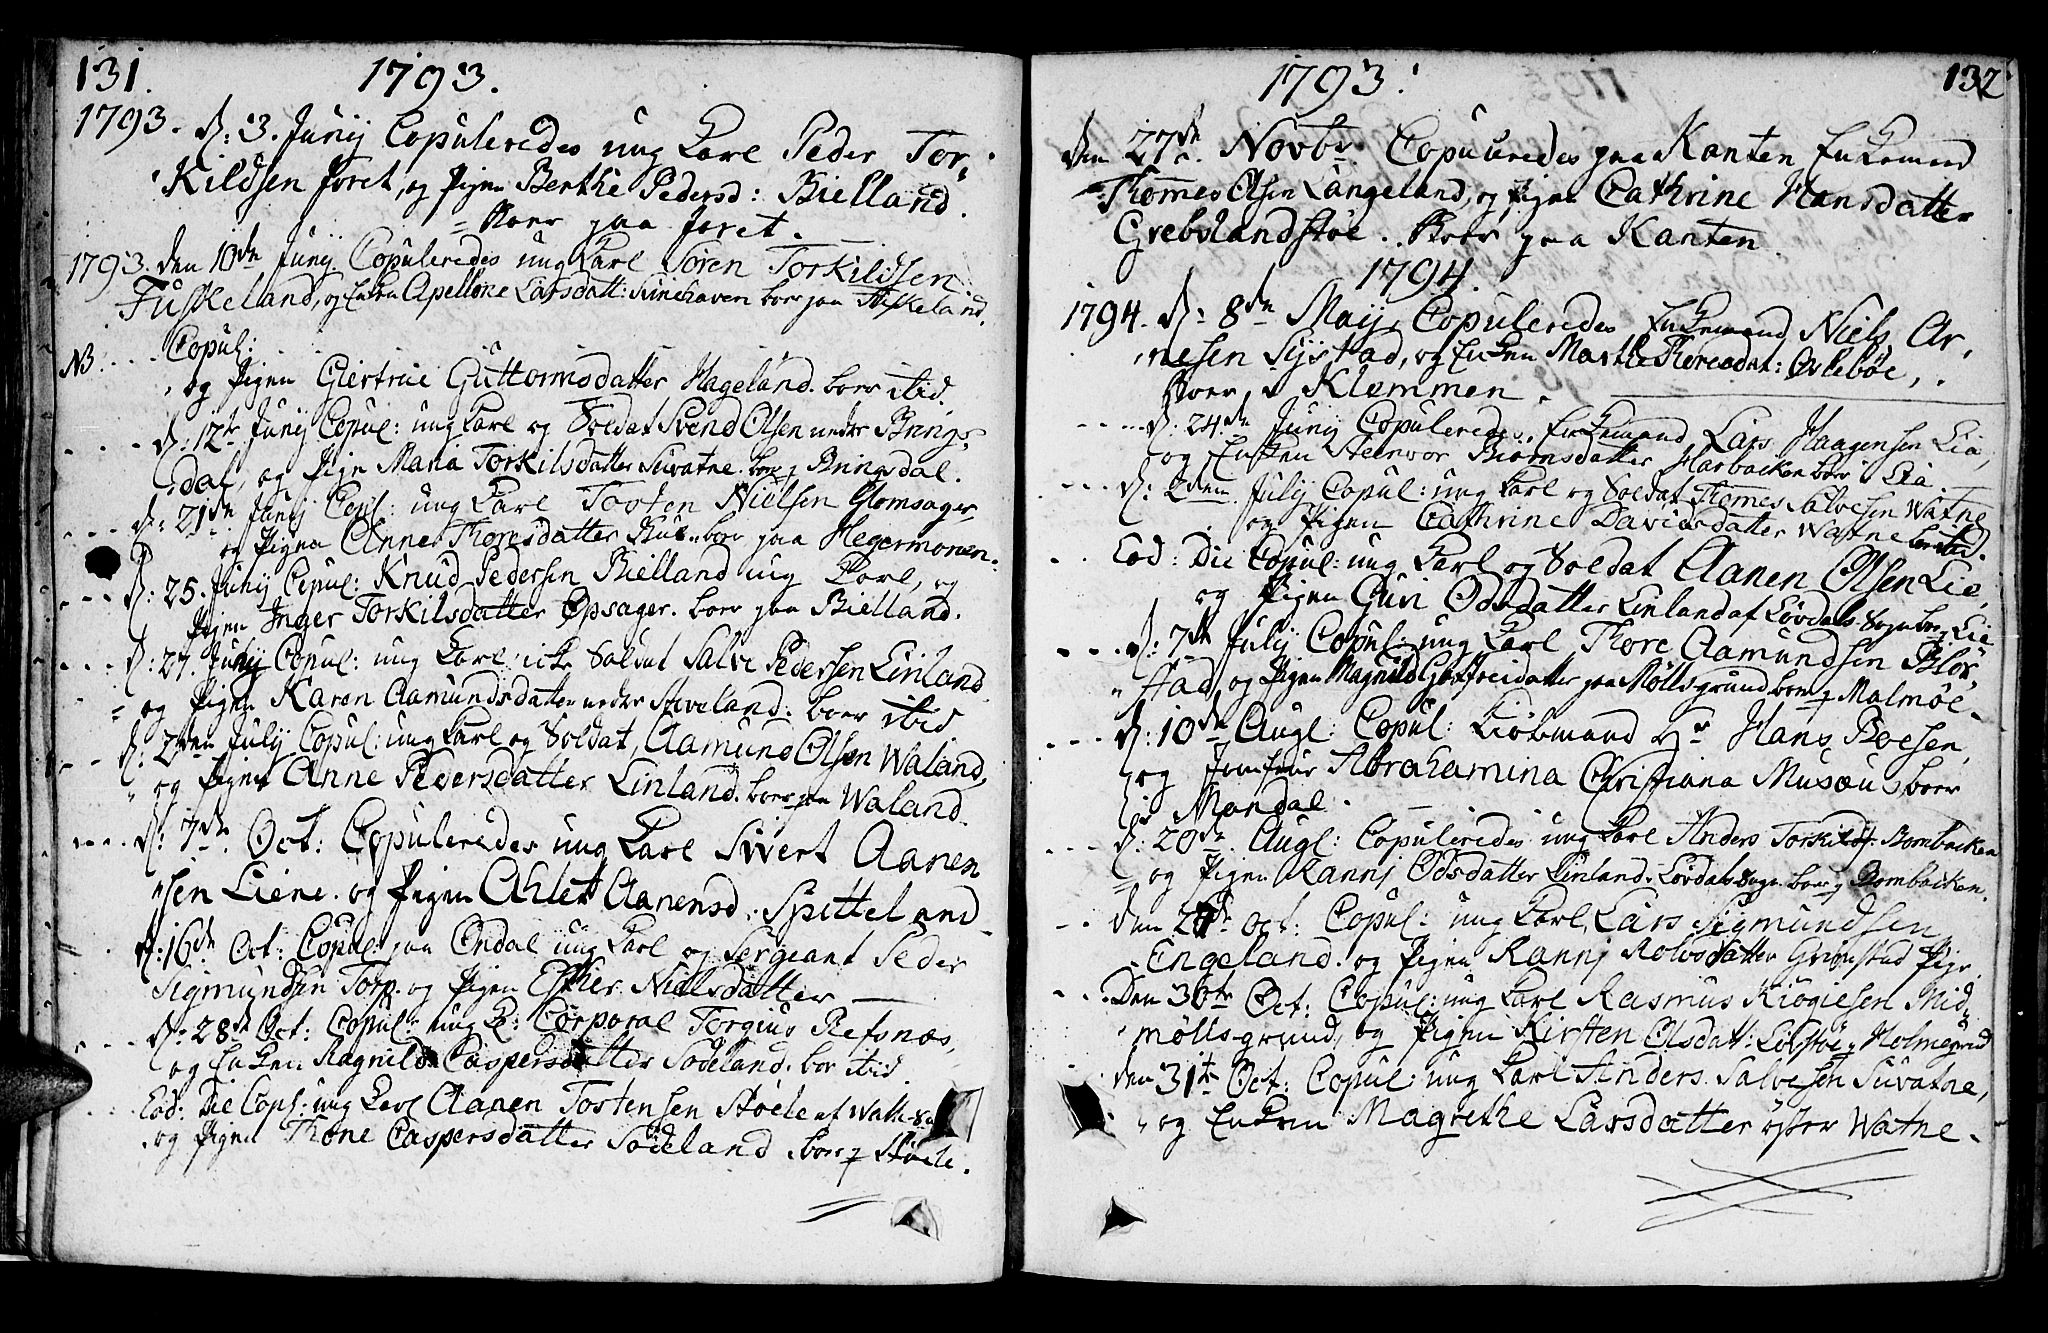 131.
1793.
1793. d: 3. Junij Copuleredes ung Karl Peder Tor-
Kildsen foret, og Pigen Berthe Pedersd: Bielland.
= boer paa foret.
1793. den 10de Junij Copuleredes ung Karl Sören Torkildsen
Fuskeland, og Enken Apellone Larsdatt: boer paa Fuskeland.
NB. Copul:
og Pigen Giertrue Guttormsdatter Hageland. boer ibid.
d: 12te Junij Copul: ung Karl og Soldat Svend Olsen neder Brings-
dal, og Pige Maria Torkilsdatter Suvatne. boer i Bringsdal.
d: 21de Junij Copl: ung Karl Tosten Nielsen Glomsager
og Pigen Anne Thomsdatter Bue. boer paa Hegermonen.
d: 25. Junij Copul: Knud Pedersen Bielland ung Karl, og
Pigen Inger Torkilsdatter Opsager. boer paa Bielland.
d: 27. Junij Copul: ung Karl icke Soldat Salve Pedersen Linland
og Pigen Karen Aamundsdatter neder Støveland. boer ibid
d: 2den Julij Copul: ung Karl og Soldat, Aamund Olsen Waland,
og Pigen Anne Pedersdatter Linland. boer paa Waland.
d: 7de Oct: Copuleredes ung Karl Sivert Aanen
sen Liene. og Pigen Ahlet Aanensd: Spitteland
d: 16de Oct: Copul: paa Öndal ung Karl og Sergeant Peder
Sigmundsen Torp. og Pigen Esther Nielsdatter
d: 28de Oct: Copul: ung K: Corporal Torgius Refsnæs,
og Enken Magnild Caspersdatter Sodeland. bor ibid
Eod: Die Copl: ung Karl Aanen Tostensen Støele af
og Pigen Thone Caspersdatter Sodeland. boer i Støele.
1793.
132
den 27de Novbr. Copuleredes paa Kanten Enkemand
Thomes Olsen Langeland, og Pigen Cathrine Hansdatter
Grebslandstøe. Boer paa Kanten.
1794.
1794. d: 8de Maij, Copuleredes Enkemand Niels Ar,
nesen Sijstad, og Enken Marthe Øslebøe,
Boer i Klemmen.
d. 24de Junij Copuleredes, Enkemand Lars Haagensen Lia,
og Enken Steinvor Biornsdatter Harbacken boer i Lia.
d: 2den Julij Copul: ung Karl og Soldat Thomes Salvesen Watne
og Pigen Cathrine Davidsdatter Watne boer ibid.
Eod: Die Copul: ung Karl og Soldat Aanen Olsen Lie
og Pigen Guri Odsdatter Linland af Løvdals-Sogn boer i Lie
d: 7de Julij Copul: ung Karl Thore Aamundsen Blör,
stad, og Pigen Magnild paa Møllsgrund boer i Malmöe.
d: 10de Augl: Copul: Kiöbmand Hr Hans Boesen,
og Jomfrue Abrahamina Christiana Musæus, boer
i Mandal.
d: 20de Augl: Copuleredes ung Karl Anders Torkilds: Bombacken
og Pigen Ranni Odsdatter Linland. Løvdals Sogn. boer i Bombacken.
den Oct: Copul: ung Karl, Lars Sigmundsen
Engeland. og Pigen Ranni Rolvsdatter Grimstad Pige
Den 30te Oct: Copul: ung Karl Rasmus Mid,
möllsgrund, og Pigen Kirsten Olsdatt: i Holmegrd
den 31te Oct: Copul: ung Karl Anders Salvesen Suvatne,
og Enken Magrethe Larsdatter öster Watne.